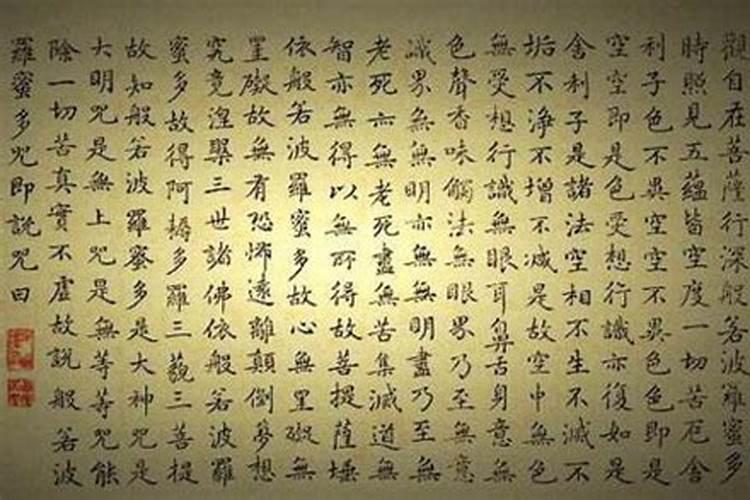 觀自在菩薩行深般若波羅蜜多
時照見五蘊皆空度一切苦厄舍
利子色不異空空不異色色即是
空空即是色受想行識亦復如是
舍利子是諸法空相不生不滅不
垢不淨不增不减是故空中無色
無受想行識無眼耳鼻舌身意無
色聲香味觸法無眼界乃至無意
識界無無明亦無無明盡乃至無
老死亦無老死盡無苦集滅道無
智亦無得以無所得故菩提薩埵
依般若波羅蜜多故心無罣礙無
罣礙故無有恐怖遠離顛倒夢想
究竟涅槃三世諸佛依般若波羅
蜜多故得阿耨多羅三藐三菩提
故知般若波羅蜜多是大神咒是
大明咒是無上咒是無等等咒能
除一切苦真實不虛故說般若波
羅蜜多咒即說咒曰